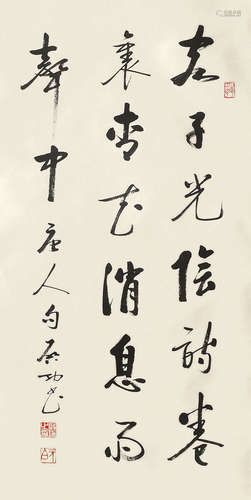 客子光陰詩卷
裏杏花消息雨
聲中 唐人句 启功書